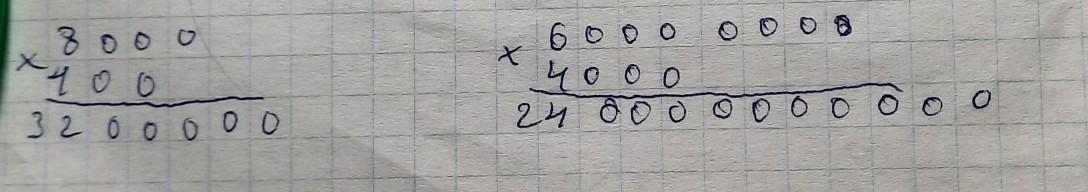 8000
× 400
3200000
6000 0000
× 4000
24 0000000000